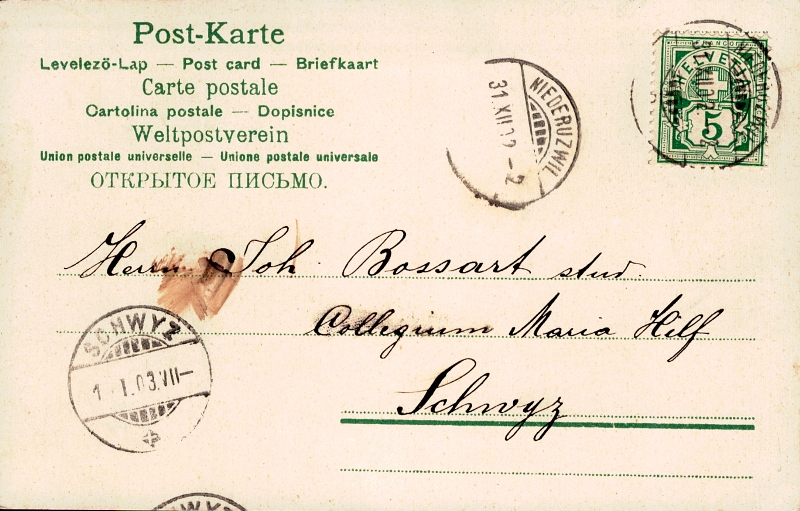 Post-Karte
Levelezö-Lap — Post card — Briefkaart
Carte postale
Cartolina postale — Dopisnice
Weltpostverein
Union postale universelle — Unione postale universale
ОТКРЫТОЕ ПИСЬМО.
NIEDERUZWIL
31.XII.02.–2
FRANCO
HELVETIA
5
Herrn Joh. Bossart stud.
Collegium Maria Hilf
Schwyz
SCHWYZ
1.I.03.VII–
SCHWYZ